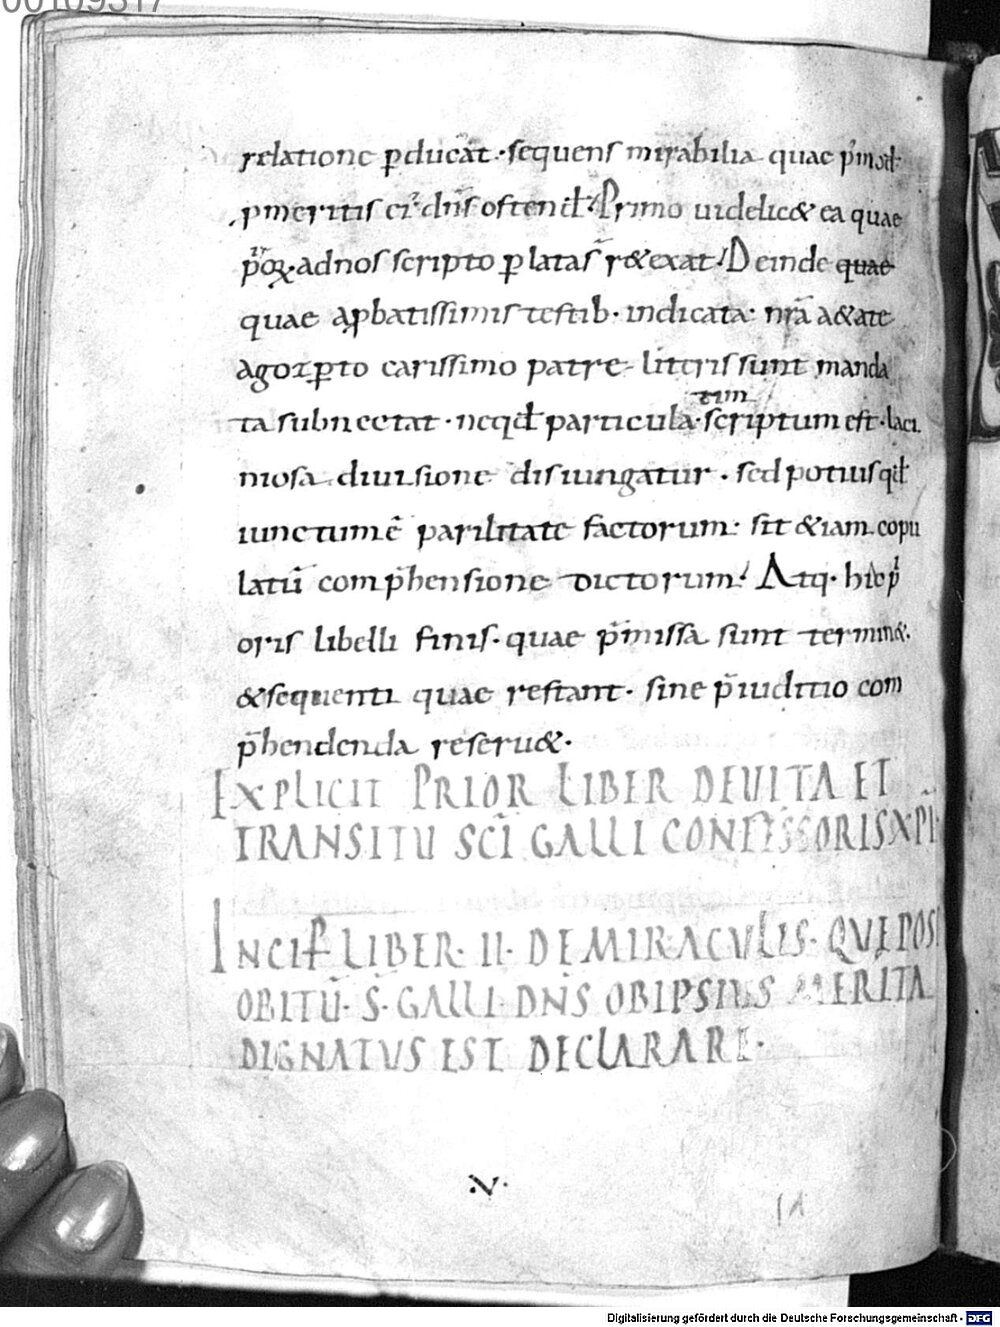 00109317
relatione p̄ducat·sequens mirabilia quae p̄mod
pmeritis ei' dn̄s ostend̄· Primo uidelic& ea quae
ad nos scripto p̄latas r&exat· Deinde quae
quae a p̄batissimis testib· indicata· nr̄a a&ate
p̄to carissimo patre litteris sunt manda
ta subnectat· neqd̄ particulatim scriptum est· laci
niosa diuisione disiungatur· sed potius qd̄
iunctum ē parilitate factorum· sit &iam copu
latū comp̄hensione dictorum· Atq· hic p̄
oris libelli finis· quae p̄missa sunt termin&·
&sequenti quae restant· sine p̄iuditio com
p̄hendenda reseru&·
EXPLICIT PRIOR LIBER DEUITA ET
TRANSITU SC̄I GALLI CONFESSORIS XP̄I·
INCIP̄ LIBER· II· DE MIRACULIS· QUE POST
OBITŪ· S· GALLI· DN̄S OB IPSIUS MERITA
DIGNATUS EST DECLARARE·
·V·
Digitalisierung gefördert durch die Deutsche Forschungsgemeinschaft - DFG